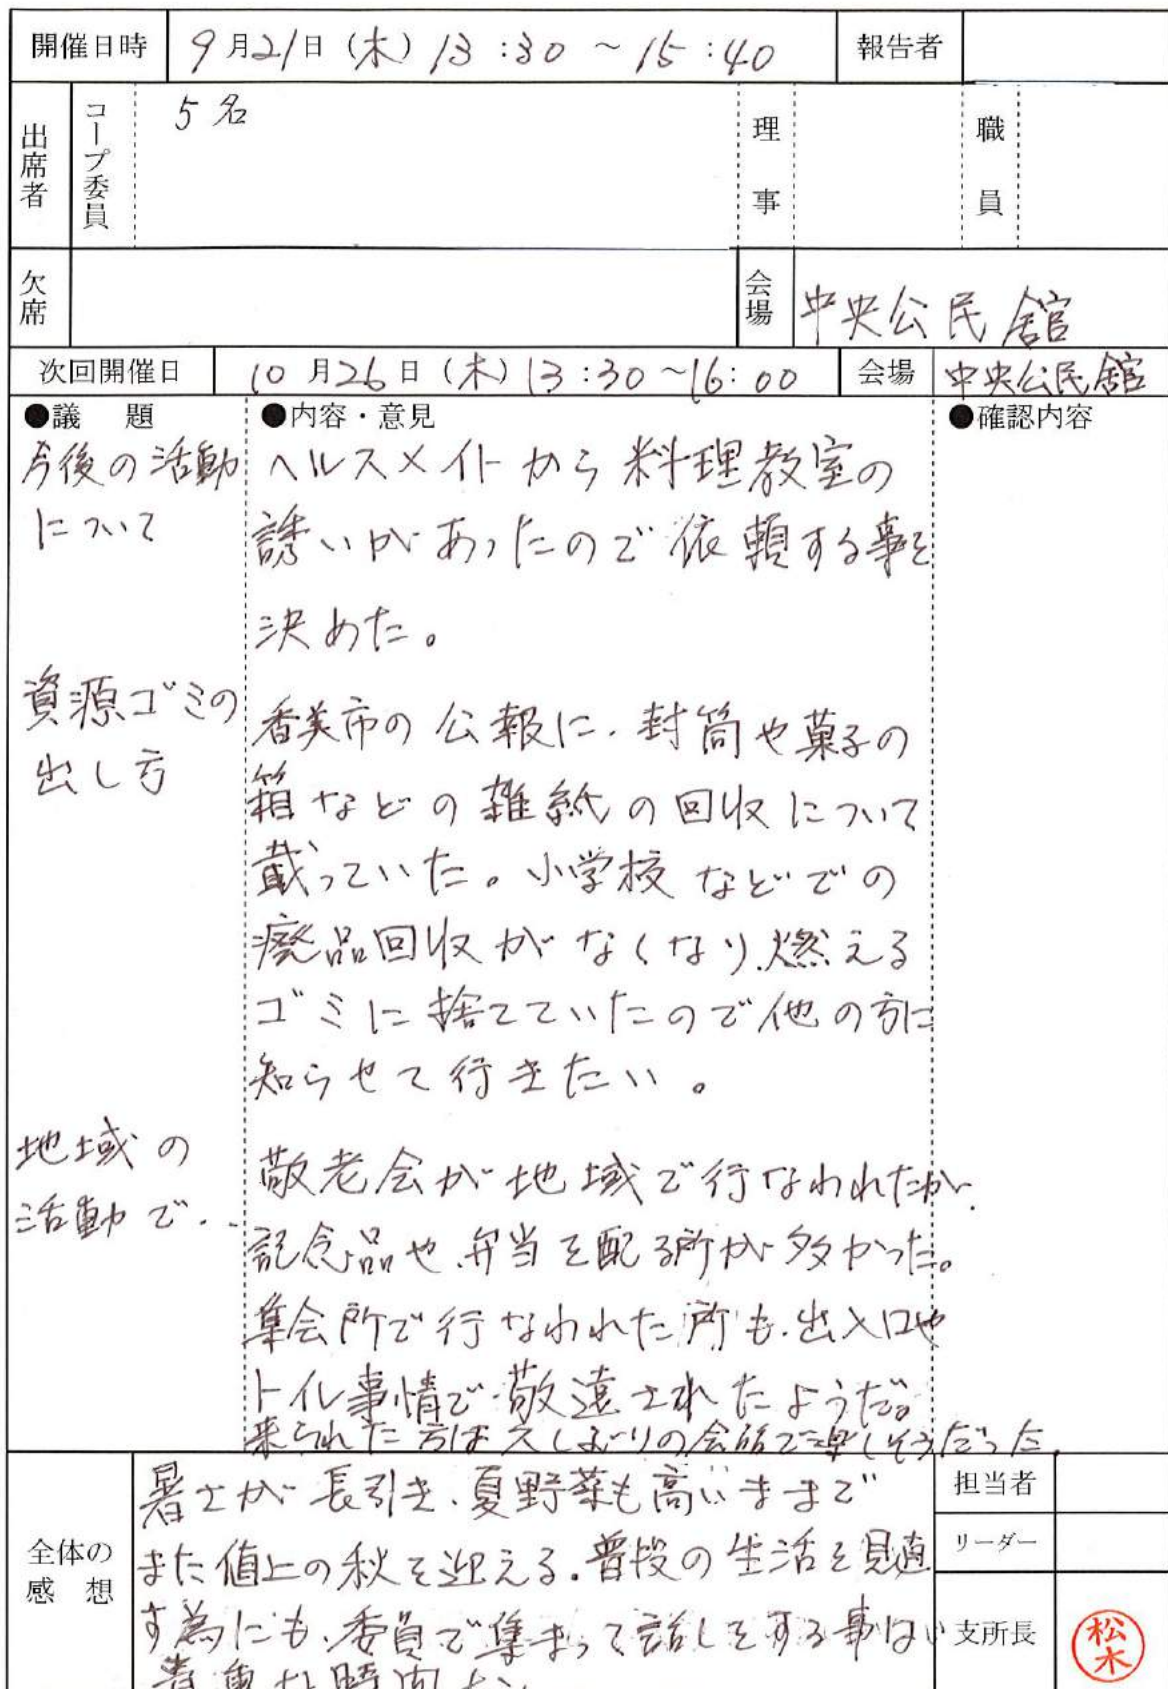 開催日時 9月21日(木)13:30~15:40 報告者
出席者 コープ委員 5名 理事 職員
欠席 会場 中央公民館
次回開催日 10月26日(木)13:30~16:00 会場 中央公民館
●議 題 ●内容・意見 ●確認内容
今後の活動
について
ヘルスメイトから料理教室の
誘いがあったので依頼する事を
決めた。
資源ゴミの
出し方
香美市の公報に、封筒や菓子の
箱などの雑紙の回収について
載っていた。小学校などでの
廃品回収がなくなり、燃える
ゴミに捨てていたので他の方に
知らせて行きたい。
地域の
活動で...
敬老会が地域で行なわれたが、
記念品や弁当を配る所が多かった。
集会所で行なわれた所も、出入口や
トイレ事情で敬遠されたようだ。
来られた方は久しぶりの会話で楽しそうだった。
全体の
感 想
暑さが長引き、夏野菜も高いままで
また値上の秋を迎える。普段の生活を見直
す為にも、委員で集まって話しをする事はい
貴重な時間だ
担当者
リーダー
支所長 松木